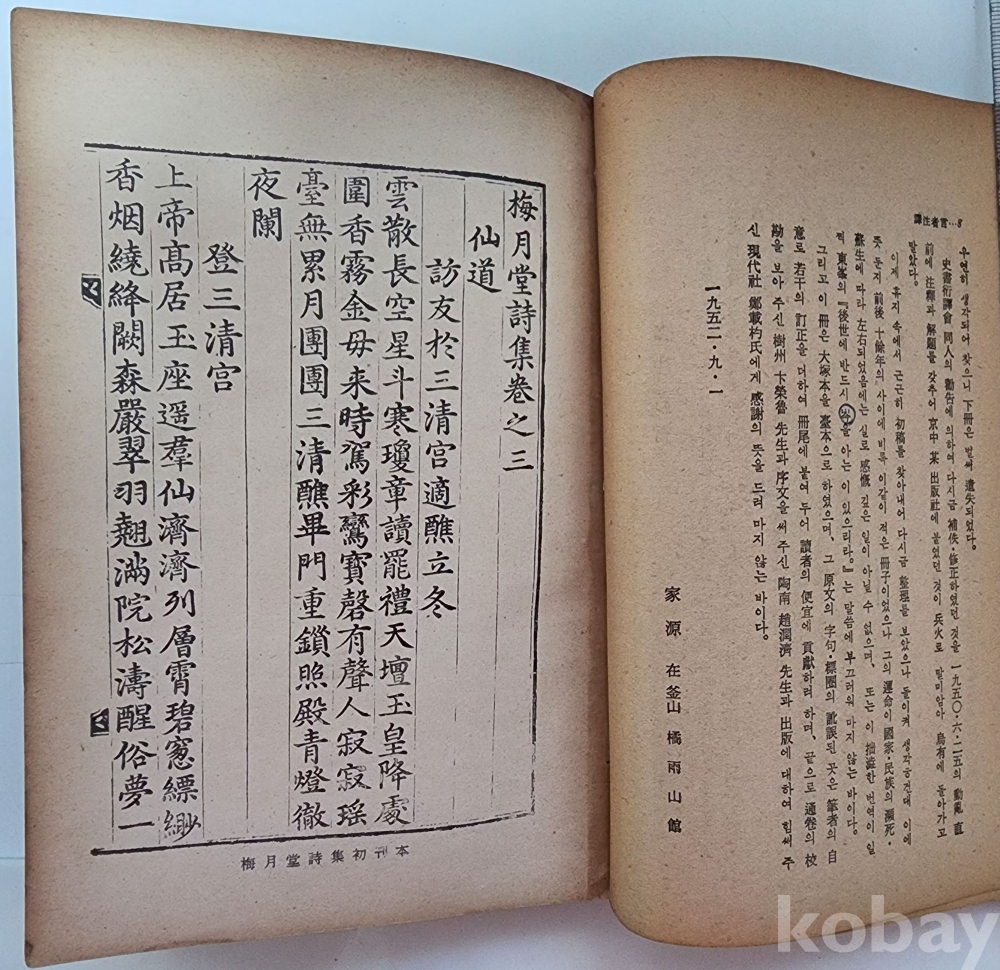 譯注者言…8
우연히 생각되어 찾으니 下冊은 벌써 遺失되었다.
史書衍譯會 同人의 勸告에 의하여 다시금 補佚·修正하였던 것을 一九五〇·六·二五의 動亂 直
前에 注釋과 解題를 갖추어 京中 某 出版社에 붙였던 것이 兵火로 말미암아 烏有에 돌아가고
말았다.
이제 휴지 속에서 근근히 初稿를 찾아내어 다시금 整理를 보았으나 돌이켜 생각하건대 이에
뜻 둔지 前後 十餘年의 사이에 비록 이같이 적은 冊子이었으나 그의 運命이 國家·民族의 瀕死·
蘇生에 따라 左右되었음에는 실로 感慨 깊은 일이 아닐 수 없으며, 또는 이 拙澁한 번역이 일
찍 東峯의 『後世에 반드시 岑을 아는 이 있으리라.』는 말씀에 부끄러워 마지 않는 바이다.
그리고 이 冊은 大塚本을 臺本으로 하였으며, 그 原文의 字句·標圈의 訛誤된 곳은 筆者의 自
意로 若干의 訂正을 더하여 冊尾에 붙여 두어 讀者의 便宜에 貢獻하려 하며, 끝으로 通卷의 校
勘을 보아 주신 樹州 卞榮魯 先生과 序文을 써 주신 陶南 趙潤濟 先生과 出版에 대하여 힘써 주
신 現代社 鄭載杓氏에게 感謝의 뜻을 드려 마지 않는 바이다.
一九五二·九·一
家源 在釜山 橘雨山館
梅月堂詩集卷之三
仙道
訪友於三清宮適醮立冬
雲散長空星斗寒瓊章讀罷禮天壇玉皇降處
圍香霧金母来時駕彩鸞寶磬有聲人寂寂瑶
臺無累月團團三清醮畢門重鎖照殿青燈徹
夜闌
登三清宮
上帝髙居玉座遥羣仙濟濟列層霄碧窓縹緲
香烟繞絳闕森嚴翠羽翹滿院松濤醒俗夢一
梅月堂詩集初刊本
kobay